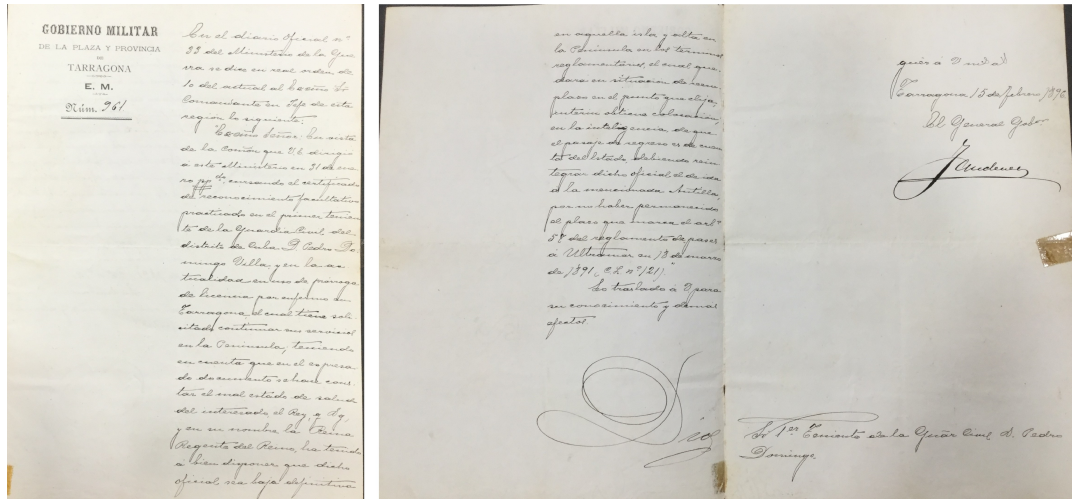 GOBIERNO MILITAR
DE LA PLAZA Y PROVINCIA
DE
TARRAGONA
E. M.
Núm. 961
En el diario oficial nº
33 del Ministerio de la Gue
rra se dice en real orden de
10 del actual al Excmo Sr
Comandante en Jefe de esta
region lo siguiente:
"Excmo Señor: En vista
de la Comon que V.E. dirigió
á este Ministerio en 31 de ene
ro ppdo, cursando el certificado
de reconocimiento facultativo
practicado en el primer tenien
te de la Guardia Civil, del
distrito de Cuba D. Pedro Do
mingo Villa, y en la ac
tualidad en uso de prorroga
de licencia por enfermo en
Tarragona el cual tiene soli
citado continuar sus servicios
en la Peninsula, teniendo
en cuenta que en el expresa
do documento se hace cons
tar el mal estado de salud
del interesado, el Rey, q. Dg,
y en su nombre la Reina
Regente del Reino, ha tenido
á bien disponer que dicho
oficial sea baja definitiva
en aquella isla y alta en
la Peninsula en los terminos
reglamentarios, el cual que
dará en situacion de reem
plazo en el punto que elija,
interin obtiene colocacion,
en la inteligencia de que
el pasaje de regreso es de cuen
ta del Estado, debiendo rein
tegrar dicho oficial el de ida
á la mencionada Antilla,
por no haber permanecido
el plazo que marca el artº
5º del reglamento de pases
á Ultramar en 18 de marzo
de 1891 (C.L. nº 121)."
Lo traslado á V para
su conocimiento y demas
efectos
Dios
gue á V ms as
Tarragona 15 de febrero 1896
El General Gobor
Sr 1er Teniente de la Guar Civil D. Pedro
Domingo